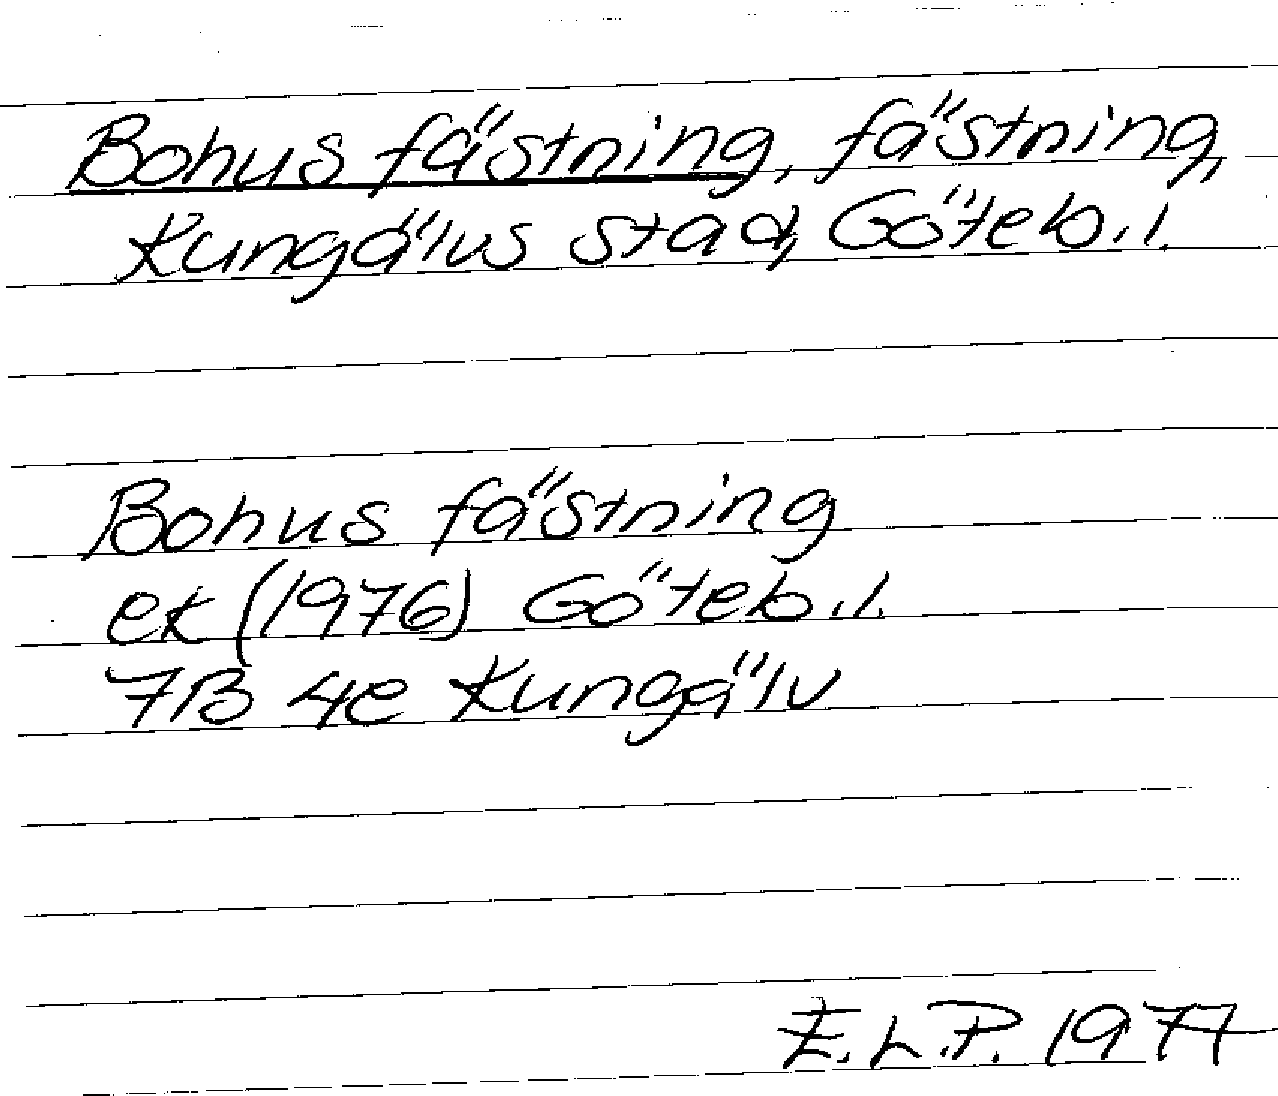 Bohus fästning, fästning,
Kungälvs stad, Göteb.l.
Bohus fästning
ek (1976) Göteb.l.
7B 4e Kungälv
E.L.P. 1977